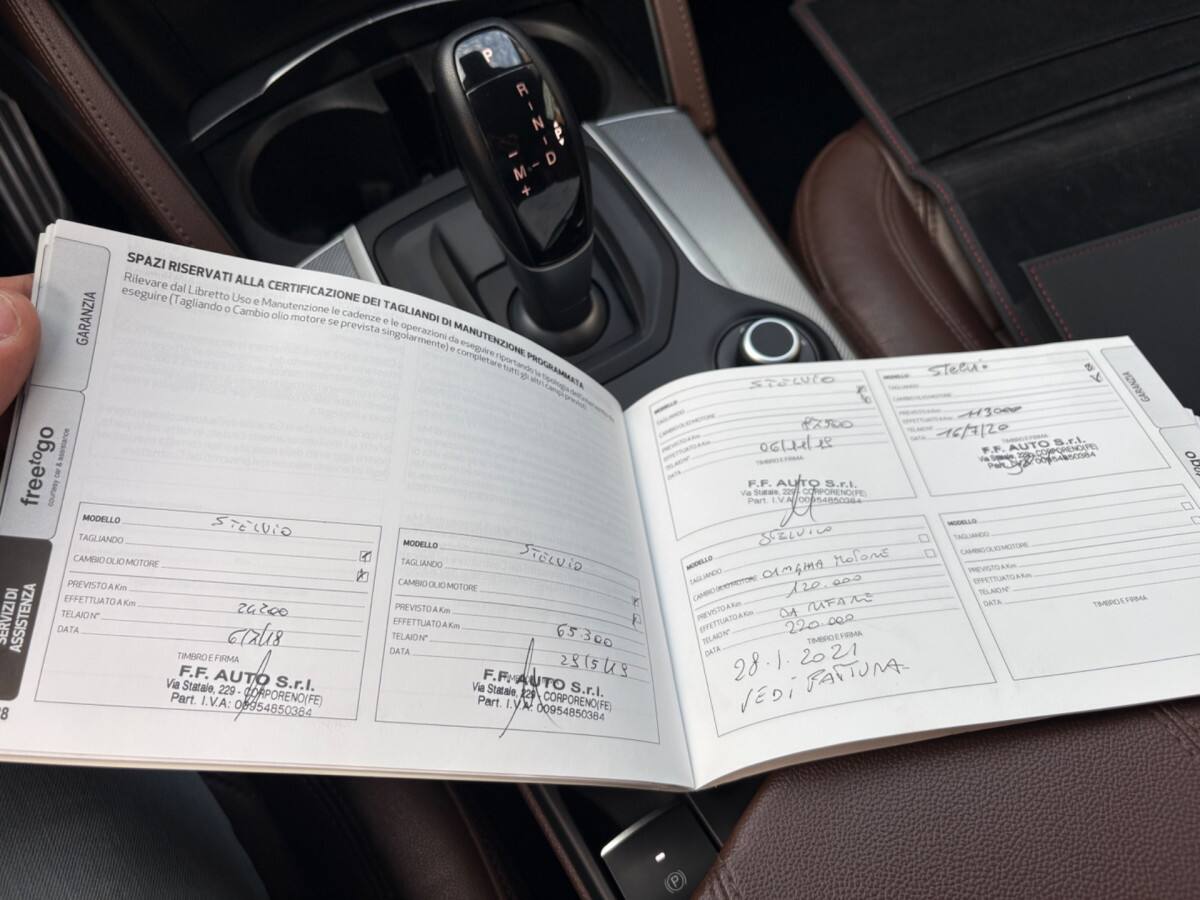 P
R
N
D
M
-
+
P
GARANZIA
freetogo
courtesy car & assistance
SERVIZI DI
ASSISTENZA
SPAZI RISERVATI ALLA CERTIFICAZIONE DEI TAGLIANDI DI MANUTENZIONE PROGRAMMATA
Rilevare dal Libretto Uso e Manutenzione le cadenze e le operazioni da eseguire riportando la tipologia dell'intervento da
eseguire (Tagliando o Cambio olio motore se prevista singolarmente) e completare tutti gli altri campi previsti
MODELLO STELVIO
TAGLIANDO
CAMBIO OLIO MOTORE
PREVISTO A Km
EFFETTUATO A Km 24200
TELAIO N°
DATA 6/7/18
TIMBRO E FIRMA
F.F. AUTO S.r.l.
Via Statale, 229 - CORPORENO(FE)
Part. I.V.A: 00954850384
MODELLO STELVIO
TAGLIANDO
CAMBIO OLIO MOTORE
PREVISTO A Km
EFFETTUATO A Km 65.300
TELAIO N°
DATA 29/5/19
F.F. AUTO S.r.l.
Via Statale, 229 - CORPORENO(FE)
Part. I.V.A: 00954850384
MODELLO STELVIO
TAGLIANDO
CAMBIO OLIO MOTORE
PREVISTO A Km
EFFETTUATO A Km
TELAIO N°
DATA
TIMBRO E FIRMA
F.F. AUTO S.r.l.
Via Statale, 229 - CORPORENO(FE)
Part. I.V.A: 00954850384
MODELLO
TAGLIANDO
CAMBIO OLIO MOTORE
PREVISTO A Km
EFFETTUATO A Km 113000
TELAIO N°
DATA 16/7/20
TIMBRO E FIRMA
F.F. AUTO S.r.l.
Via Statale, 229 - CORPORENO(FE)
Part. I.V.A: 00954850384
GARANZIA
MODELLO STELVIO
TAGLIANDO
CAMBIO OLIO MOTORE CINGHIA MOTORE
PREVISTO A Km 120.000
EFFETTUATO A Km DA RIFARE
TELAIO N° 220.000
DATA
TIMBRO E FIRMA
28.1.2021
VEDI FATTURA
MODELLO
TAGLIANDO
CAMBIO OLIO MOTORE
PREVISTO A Km
EFFETTUATO A Km
TELAIO N°
DATA
TIMBRO E FIRMA
P